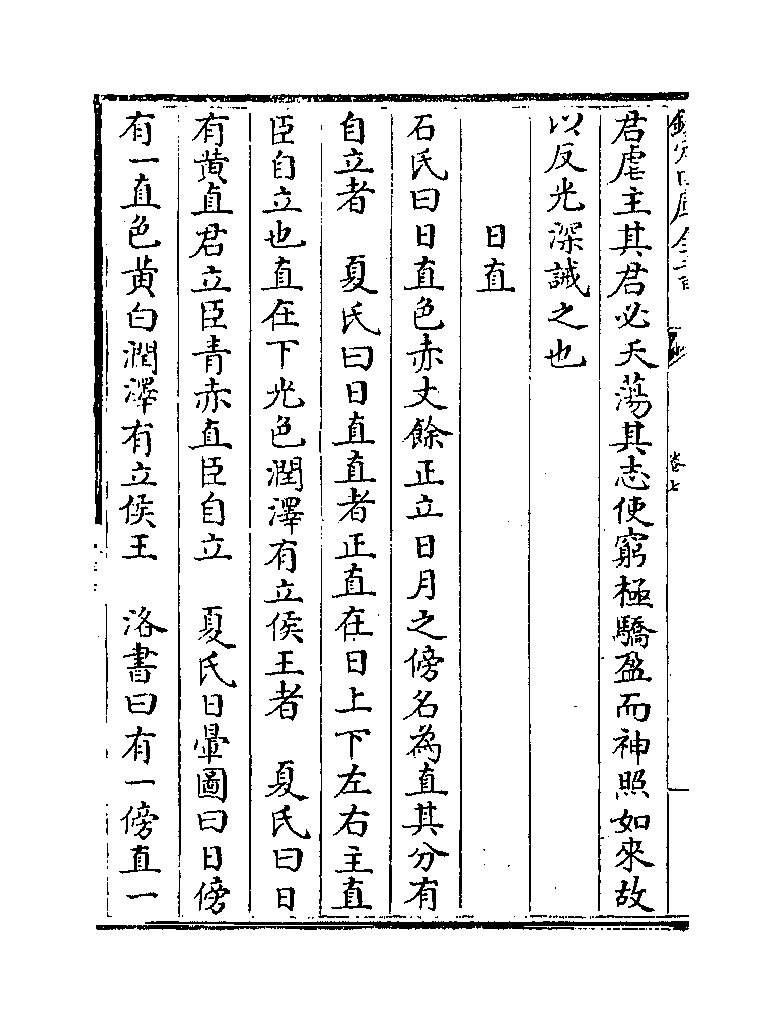 欽定四庫全書
卷七
君虐主其君必夭蕩其志使窮極驕盈而神照如來故
以反光深誡之也
日直
石氏曰日直色赤丈餘正立日月之傍名為直其分有
自立者　夏氏曰日直直者正直在日上下左右主直
臣自立也直在下光色潤澤有立侯王者　夏氏曰日
有黄直君立臣青赤直臣自立　夏氏日暈圖曰日傍
有一直色黄白潤澤有立侯王　洛書曰有一傍直一